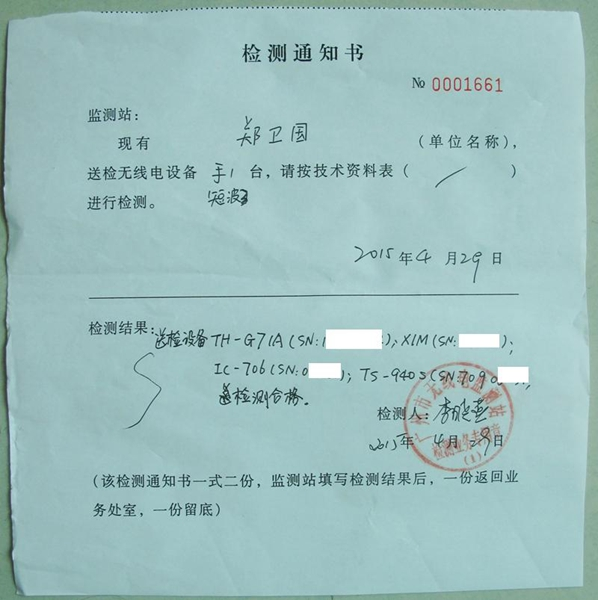 检测通知书
No 0001661
监测站：
现有 郑卫国 （单位名称），
送检无线电设备 手1 台，请按技术资料表（ / ）
进行检测。 短波3
2015年4月29日
检测结果：送检设备TH-G71A(SN:1 ); X1M(SN: );
IC-706(SN:0 ); TS-940S(SN7090
检测合格。
检测人：李晓燕
2015年4月29日
广州市无线电监测站
检测业务专用章
(1)
(该检测通知书一式二份，监测站填写检测结果后，一份返回业
务处室，一份留底)